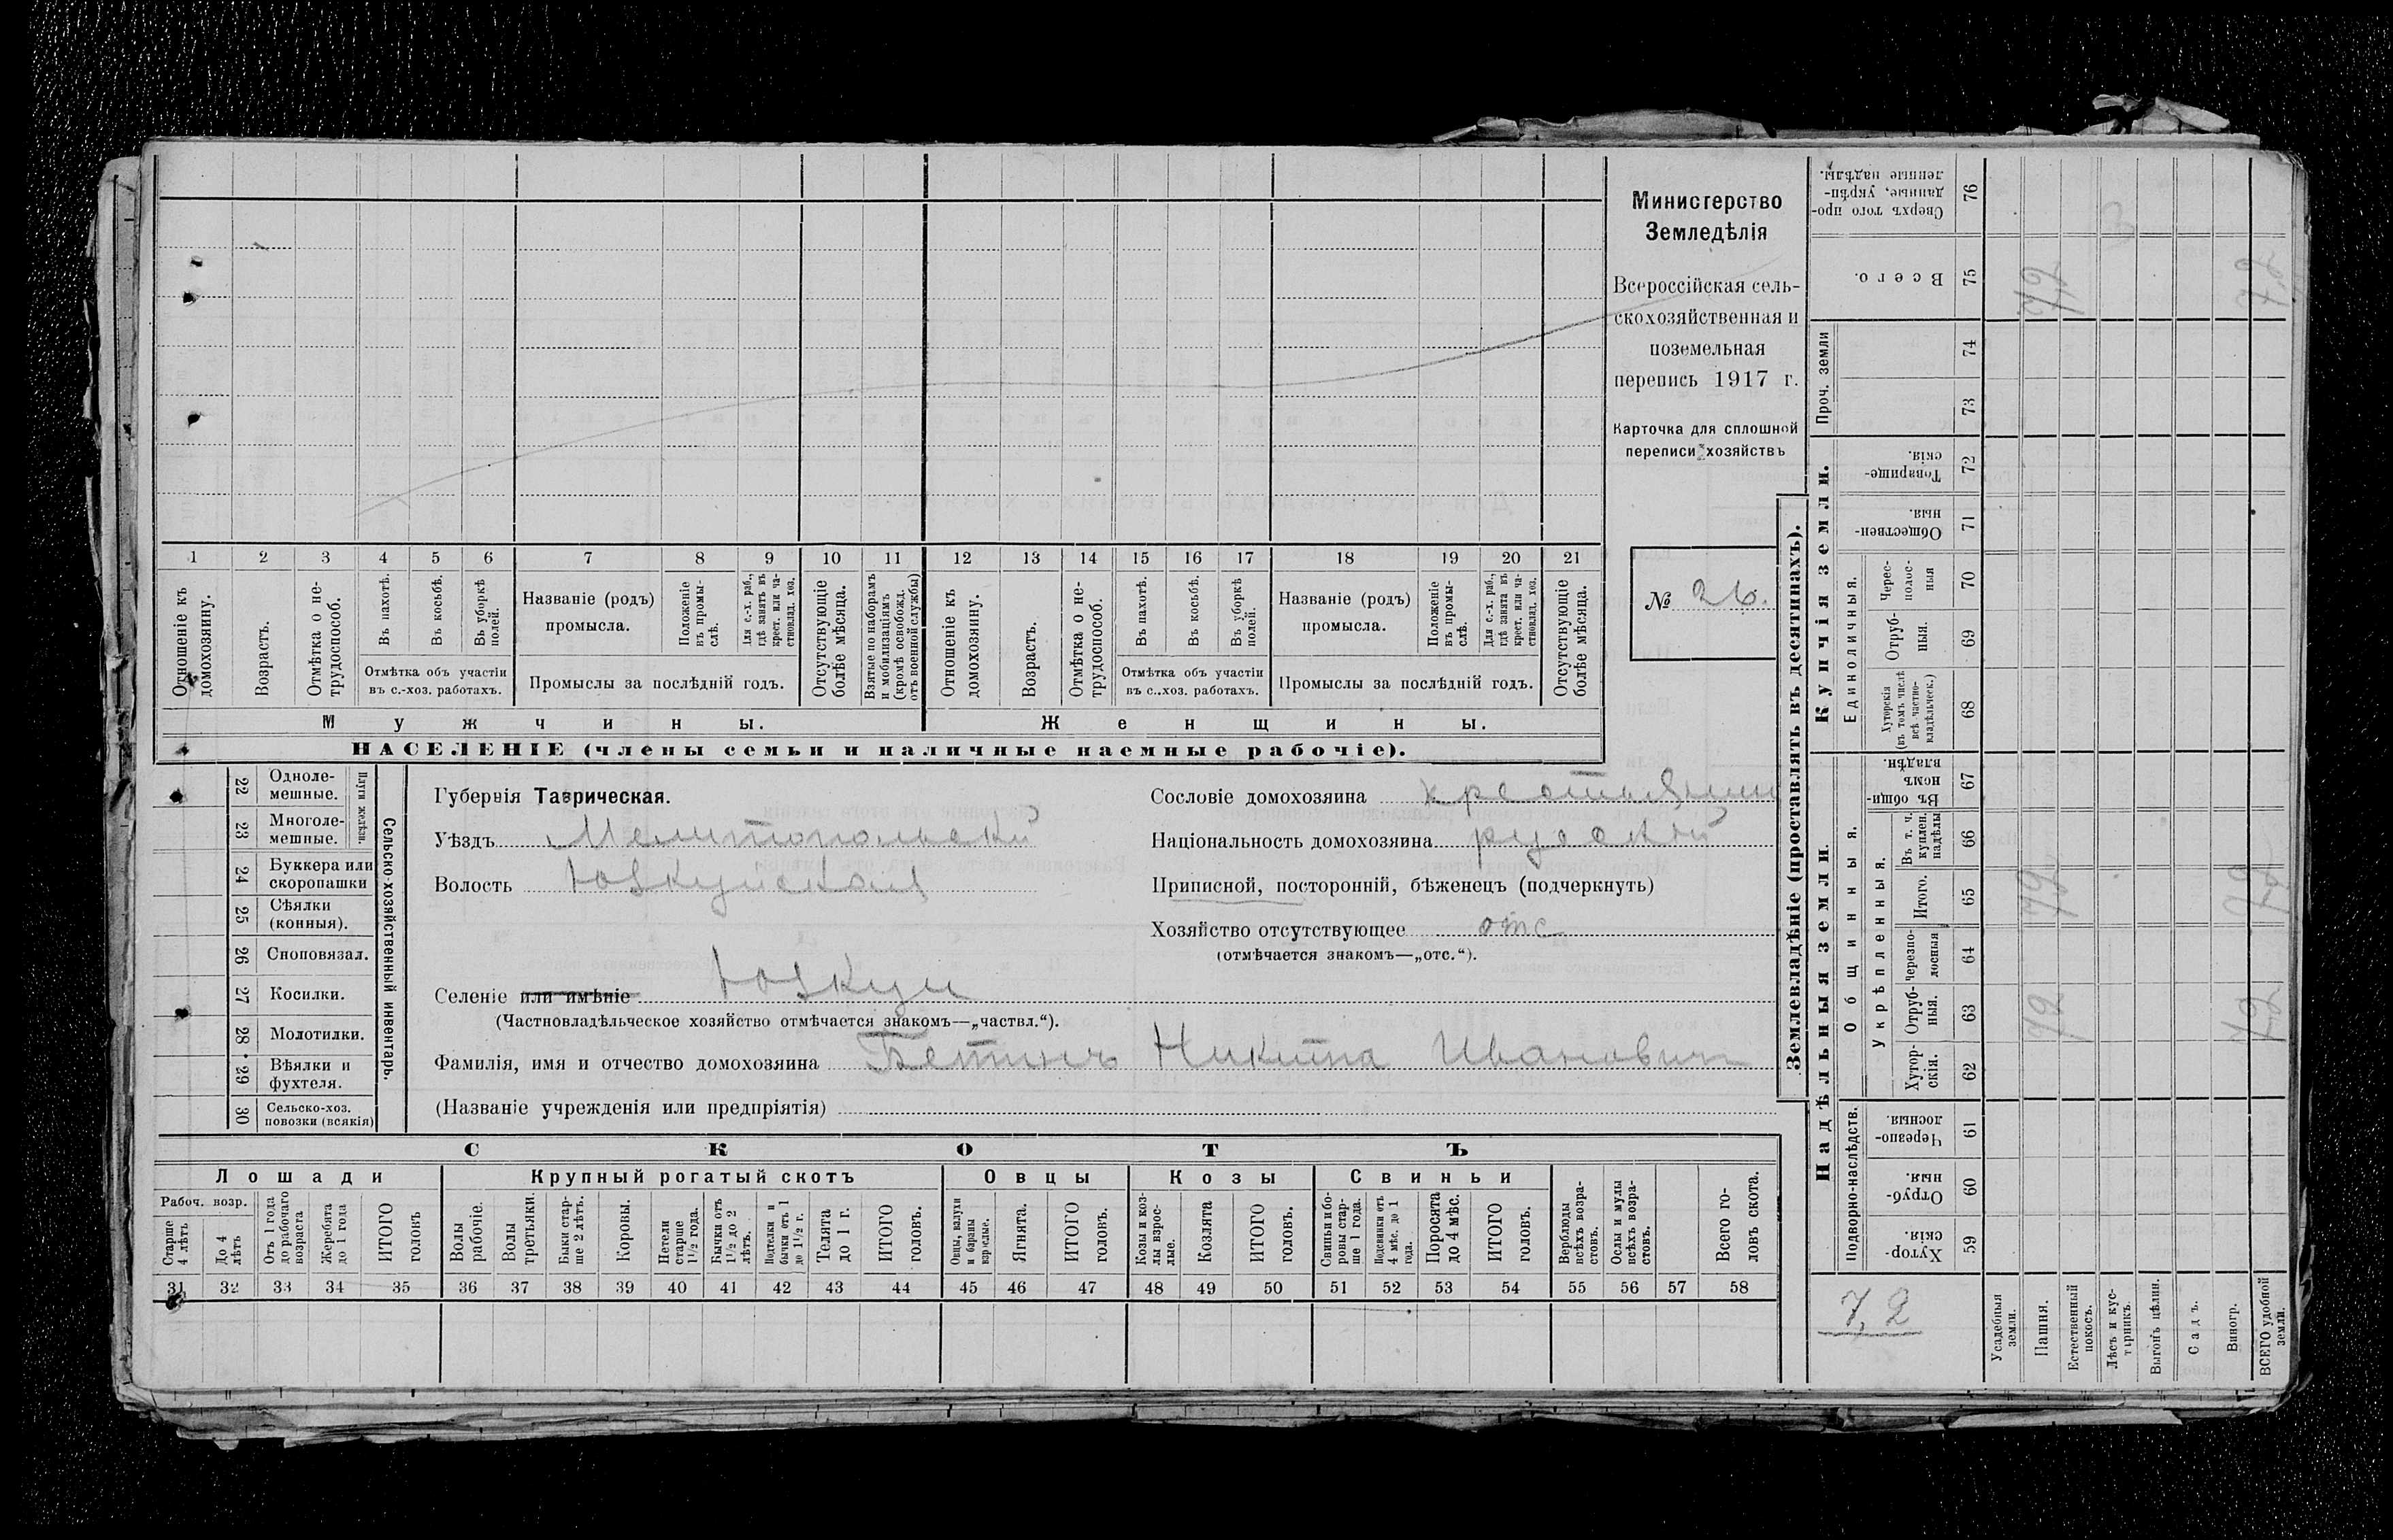 Министерство
Земледѣлія
Всероссійская сель-
скохозяйственная и
поземельная
перепись 1917 г.
Карточка для сплошной
переписи хозяйствъ
№ 26.
1 2 3 4 5 6 7 8 9 10 11 12 13 14 15 16 17 18 19 20 21
Отношеніе къ домохозяину.
Возрастъ.
Отмѣтка о не-трудоспособ.
Въ пахотѣ.
Въ косьбѣ.
Въ уборкѣ полей.
Отмѣтка объ участіи
въ с.-хоз. работахъ.
Названіе (родъ)
промысла.
Положеніе въ промы-слѣ.
Для с.-х. раб., гдѣ занятъ въ крест. или ча-стновлад. хоз.
Промыслы за послѣдній годъ.
Отсутствующіе болѣе мѣсяца.
Взятые по наборамъ и мобилизаціямъ (кромѣ освобожд. отъ военной службы)
Отношеніе къ домохозяину.
Возрастъ.
Отмѣтка о не-трудоспособ.
Въ пахотѣ.
Въ косьбѣ.
Въ уборкѣ полей.
Отмѣтка объ участіи
въ с..хоз. работахъ.
Названіе (родъ)
промысла.
Положеніе въ промы-слѣ.
Для с.-х. раб., гдѣ занята въ крест. или ча-стновлад. хоз.
Промыслы за послѣдній годъ.
Отсутствующіе болѣе мѣсяца.
Мужчины.
Женщины.
НАСЕЛЕНІЕ (члены семьи и наличные наемные рабочіе).
Сельско-хозяйственный инвентарь.
Плуги желѣзн.
22 Одноле-мешные.
23 Многоле-мешные.
24 Буккера или скоропашки
25 Сѣялки (конныя).
26 Сноповязал.
27 Косилки.
28 Молотилки.
29 Вѣялки и фухтеля.
30 Сельско-хоз. повозки (всякія)
Губернія Таврическая.
Уѣздъ Мелитопольскій
Волость Юзкуйская
Селеніе или имѣніе Юзкуи
(Частновладѣльческое хозяйство отмѣчается знакомъ—„частвл.“).
Фамилія, имя и отчество домохозяина Бетинъ Никита Ивановичъ
(Названіе учрежденія или предпріятія)
Сословіе домохозяина крестьянин
Національность домохозяина русскій
Приписной, посторонній, бѣженецъ (подчеркнуть)
Хозяйство отсутствующее отс
(отмѣчается знакомъ—„отс.“).
СКОТЪ
Лошади
Крупный рогатый скотъ
Овцы
Козы
Свиньи
Рабоч. возр.
Старше 4 лѣтъ
До 4 лѣтъ
Отъ 1 года до рабочаго возраста
Жеребята до 1 года
ИТОГО головъ
Волы рабочіе.
Волы третьяки.
Быки стар-ше 2 лѣтъ.
Коровы.
Нетели старше 1½ года.
Бычки отъ 1½ до 2 лѣтъ.
Подтелки и бычки отъ 1 до 1½ г.
Телята до 1 г.
ИТОГО головъ.
Овцы, валухи и бараны взрослые.
Ягнята.
ИТОГО головъ.
Козы и коз-лы взрос-лые.
Козлята
ИТОГО головъ.
Свиньи и бо-ровы стар-ше 1 года.
Подсвинки отъ 4 мѣс. до 1 года.
Поросята до 4 мѣс.
ИТОГО головъ.
Верблюды всѣхъ возра-стовъ.
Ослы и мулы всѣхъ возра-стовъ.
Всего го-ловъ скота.
31 32 33 34 35 36 37 38 39 40 41 42 43 44 45 46 47 48 49 50 51 52 53 54 55 56 57 58
Землевладѣніе (проставлять въ десятинахъ).
Купчія земли.
Надѣльныя земли
Сверхъ того про-данные, укрѣп-ленные надѣлы. 76
Всего. 75 7,2 7,2
Проч. земли
74
73
Товарище-скія. 72
Обществен-ныя. 71
Единоличныя.
Черес-полос-ныя 70
Отруб-ныя. 69
Хуторскія (въ томъ числѣ всѣ частно-владѣльческ.) 68
Общинныя.
Въ общи-номъ владѣн. 67
Укрѣпленныя.
Въ т. ч. куплен. надѣлы 66
Итого. 65 7,2 7,2
Черезпо-лосныя 64
Отруб-ныя. 63 7,2 7,2
Хутор-скія. 62
Подворно-наслѣдств.
Черезпо-лосныя. 61
Отруб-ныя. 60
Хутор-скія. 59
7,2
Усадебныя земли.
Пашня.
Естественный покосъ.
Лѣсъ и кус-тарникъ.
Выгонъ цѣлин.
Садъ.
Виногр.
ВСЕГО удобной земли.